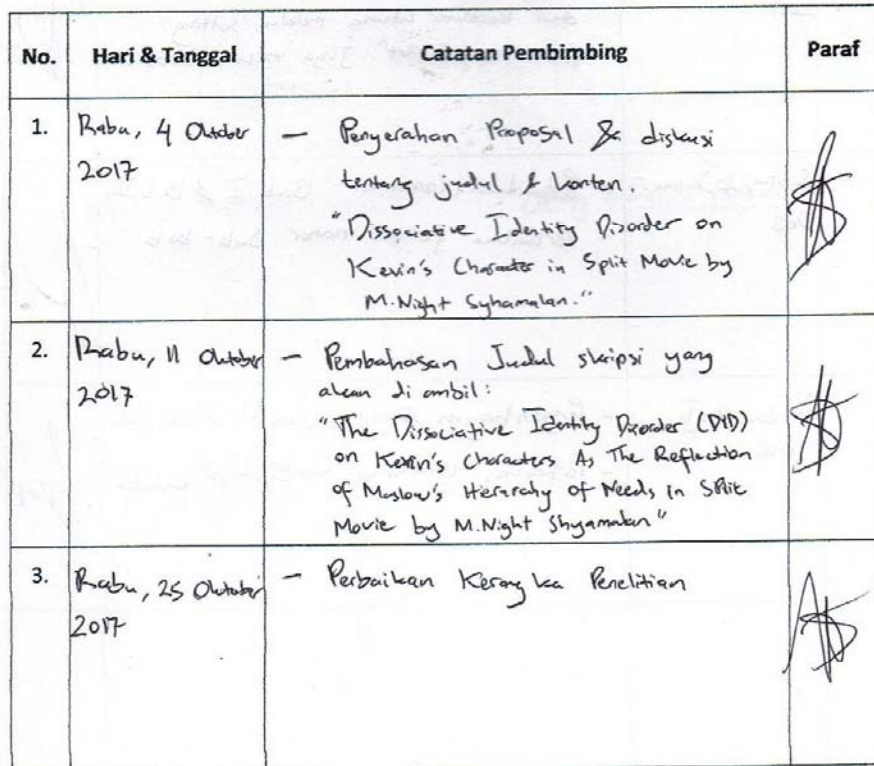 No. Hari & Tanggal Catatan Pembimbing Paraf
1. Rabu, 4 Oktober 2017
- Penyerahan Proposal & diskusi
tentang judul & konten
"Dissociative Identity Disorder on
Kevin's Character in Split Movie by
M.Night Syhamalan."
2. Rabu, 11 Oktober 2017
- Pembahasan Judul skripsi yang
akan di ambil:
"The Dissociative Identity Disorder (DID)
on Kevin's Characters As The Reflection
of Maslow's Hierarchy of Needs in Split
Movie by M.Night Shyamalan"
3. Rabu, 25 Oktober 2017
- Perbaikan Kerangka Penelitian